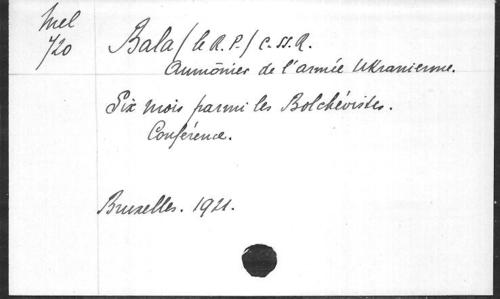 Mel
720
Bala (le R.P.) C.SS.R.
Aumônier de l'armée Ukranienne.
Six mois parmi les Bolchévistes.
Conférence.
Bruxelles. 1921.